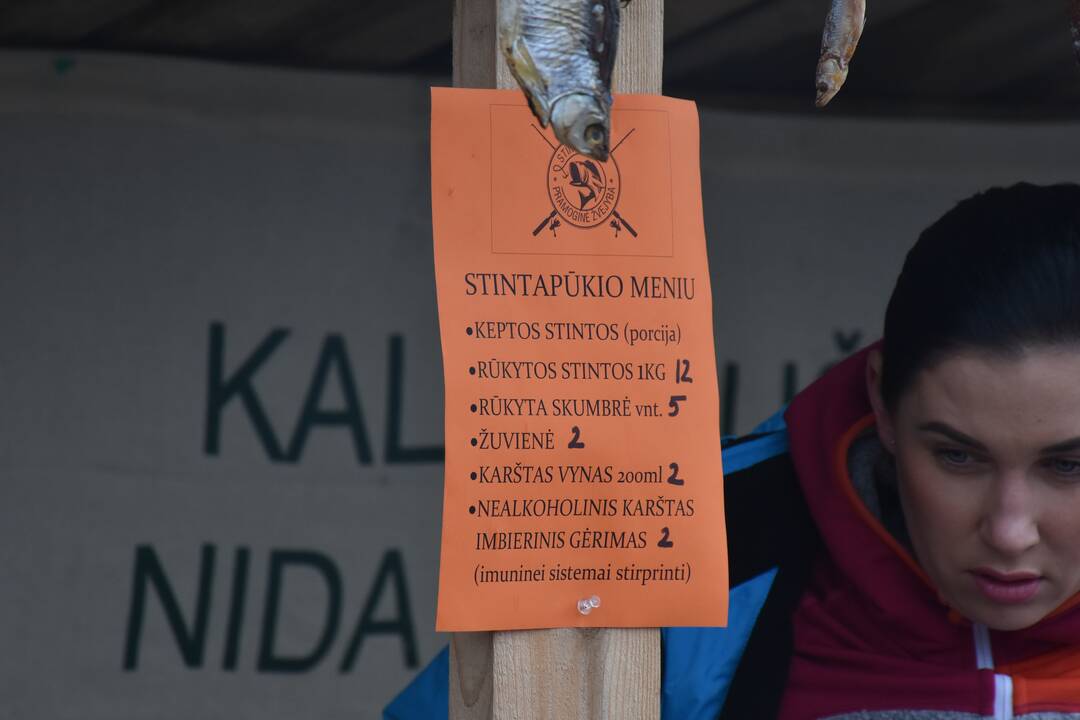 PRAMOGINĖ ŽVEJYBA
STINTAPŪKIO MENIU
•KEPTOS STINTOS (porcija)
•RŪKYTOS STINTOS 1KG 12
•RŪKYTA SKUMBRĖ vnt. 5
•ŽUVIENĖ 2
•KARŠTAS VYNAS 200ml 2
•NEALKOHOLINIS KARŠTAS
IMBIERINIS GĖRIMAS 2
(imuninei sistemai stirprinti)
NIDA